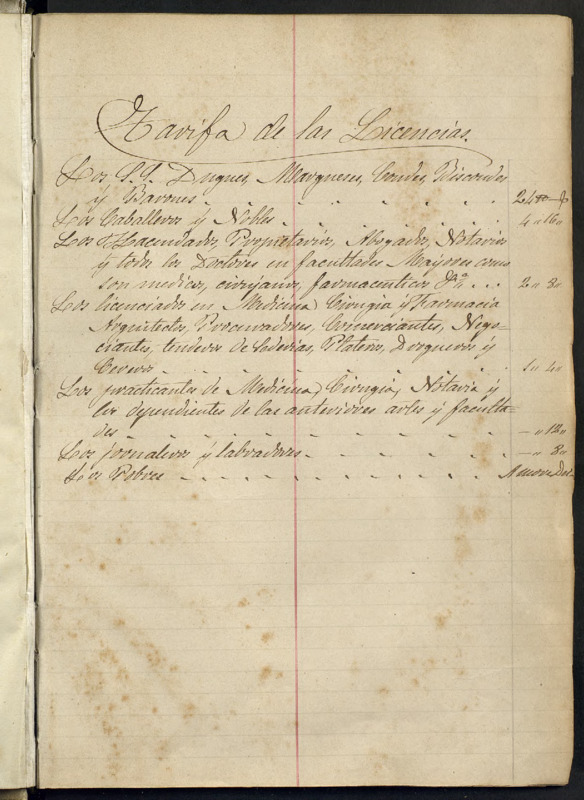 Tarifa de las Licencias.
Los S.S. Duques, Marqueses, Condes, Biscondes
y Barones . . . . . . . . 24
Los Caballeros y Nobles . . . . . . 4 " 16 "
Los Hacendados, Propietarios, Abogados, Notarios
y todos los Doctores en facultades Mayores como
son medicos, cirujanos, farmaceuticos &ª . . . 2 " 8 "
Los licenciados en Medicina, Cirugia y Farmacia
Arquitectos, Procuradores, Comerciantes, Nego-
ciantes, tenderos de Sederias, Plateros, Drogueros y
Cereros . . . . . . . . . 1 " 4 "
Los practicantes de Medicina, Cirugia, Notaria y
los dependientes de las anteriores artes y faculta-
des . . . . . . . . . — " 12 "
Los jornaleros y labradores . . . . . . — " 8 "
Los Pobres . . . . . . . . . Amore Dei